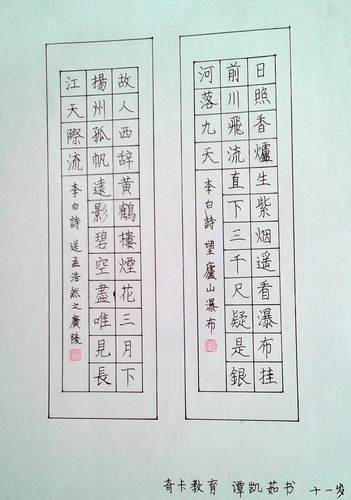 日照香爐生紫烟遥看瀑布挂
前川飛流直下三千尺疑是銀
河落九天 李白詩 望廬山瀑布
故人西辞黃鶴樓煙花三月下
揚州孤帆遠影碧空盡唯見長
江天際流 李白詩 送孟浩然之廣陵
奇卡教育 谭凯茹书 十一岁